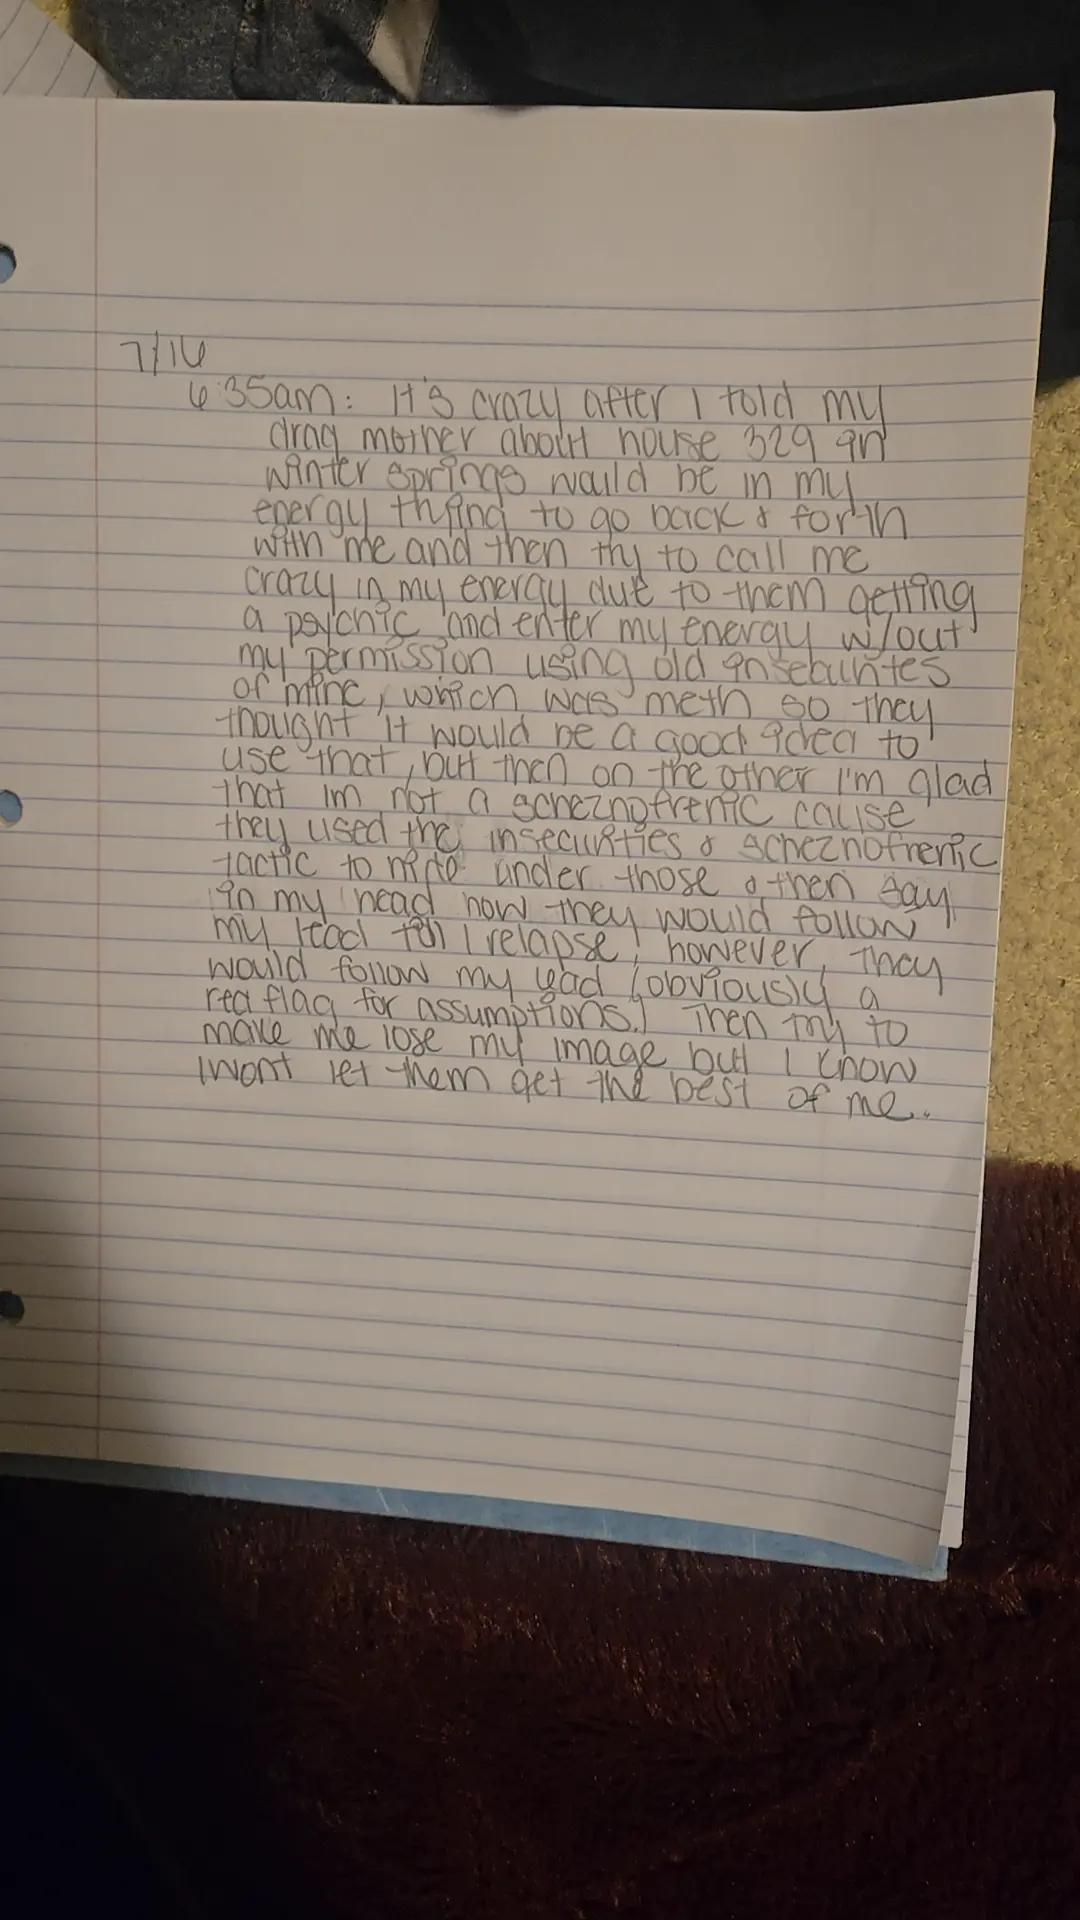 7/16
6:35am: It's crazy after I told my
drag mother about house 329 in
winter springs would be in my
energy trying to go back & forth
with me and then try to call me
crazy in my energy due to them getting
a psychic and enter my energy w/out
my permission using old insecurites
of mine, which was meth so they
thought it would be a good idea to
use that, but then on the other I'm glad
that im not a scheznofrenic cause
they used the insecurities & scheznofrenic
tactic to hide under those & then say
in my head how they would follow
my lead till I relapse, however, they
would follow my lead (obviously a
red flag for assumptions.) Then try to
make me lose my image but I know
I wont let them get the best of me..